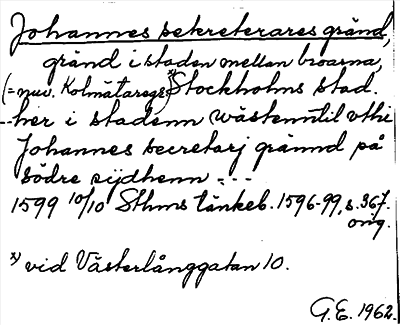 Johannes sekreterares gränd,
gränd i staden mellan broarna,
(= nuv. Kolmätaregr.) x) Stockholms stad.
--her i stadenn wästenntil vthi
Johannes secretarj grännd på
södre sijdhenn ---
1599 10/10 Sthms tänkeb. 1596-99, s. 367.
orig.
x) vid Västerlånggatan 10.
G.E. 1962.